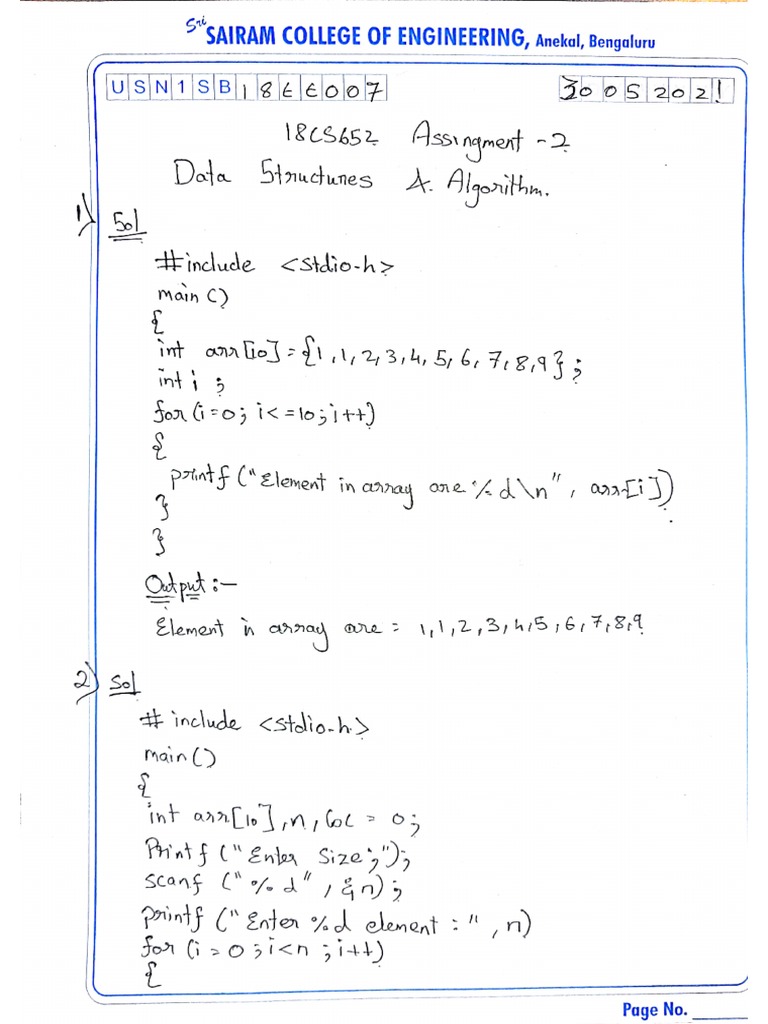 Sri
SAIRAM COLLEGE OF ENGINEERING, Anekal, Bengaluru
USN1SB18EE007 30052021
18CS652 Assingment -2
Data Structures & Algorithm.
1) Sol
#include <stdio.h>
main()
{
int arr[10]={1,1,2,3,4,5,6,7,8,9};
int i ;
for(i=0; i<=10;i++)
{
printf("Element in array are %d\n", arr[i])
}
}
Output:-
Element in array are = 1,1,2,3,4,5,6,7,8,9
2) Sol
#include <stdio.h>
main()
{
int arr[10],n,loc = 0;
Printf ("Enter Size;");
scanf ("%d", &n);
printf ("Enter %d element :", n)
for (i=0;i<n;i++)
{
Page No.